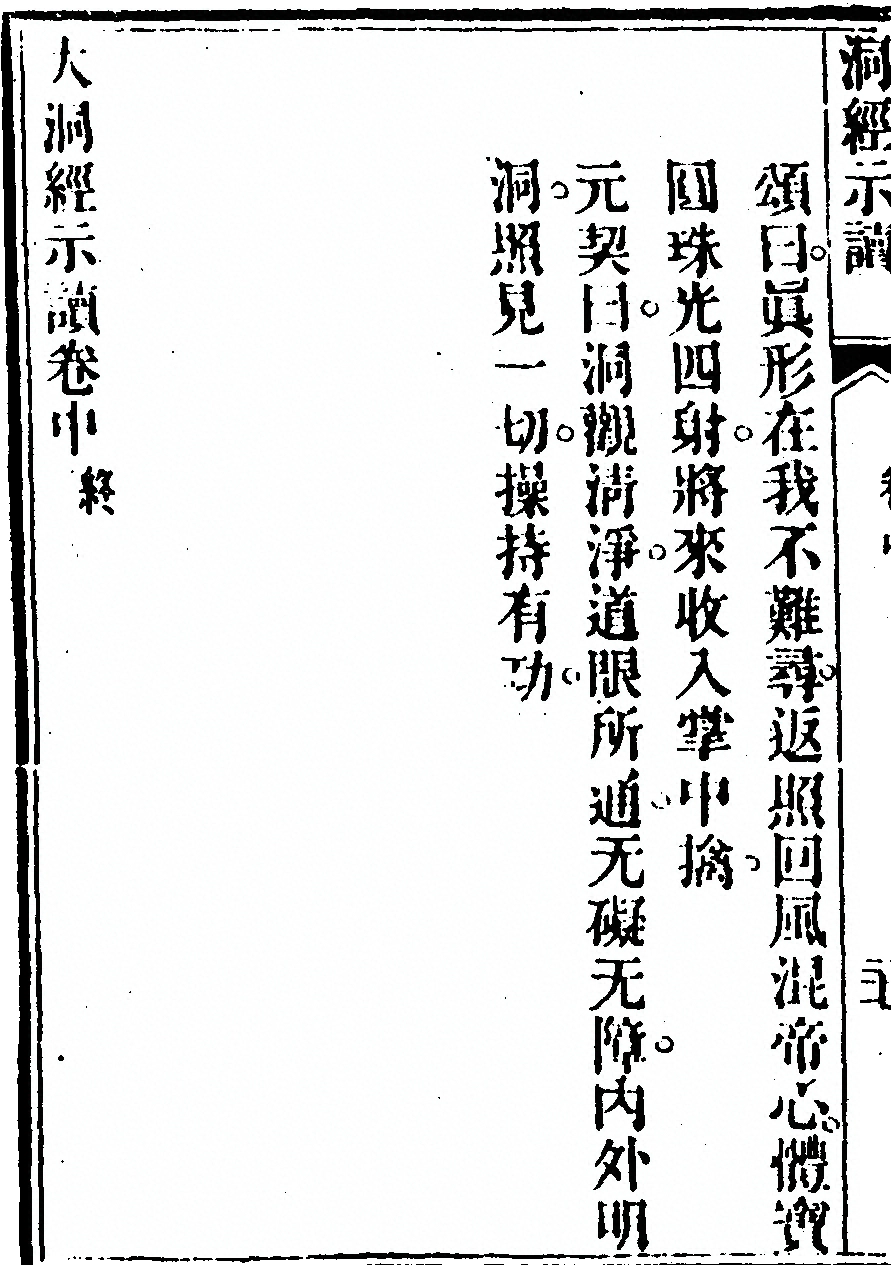 洞經示讀
頌曰。眞形在我不難尋。返照回風混帝心。體寶
圓珠光四射。將來收入掌中擒。
元契曰。洞觀清淨。道眼所通。无礙无障。內外明
洞。照見一切。操持有功。
大洞經示讀卷中終